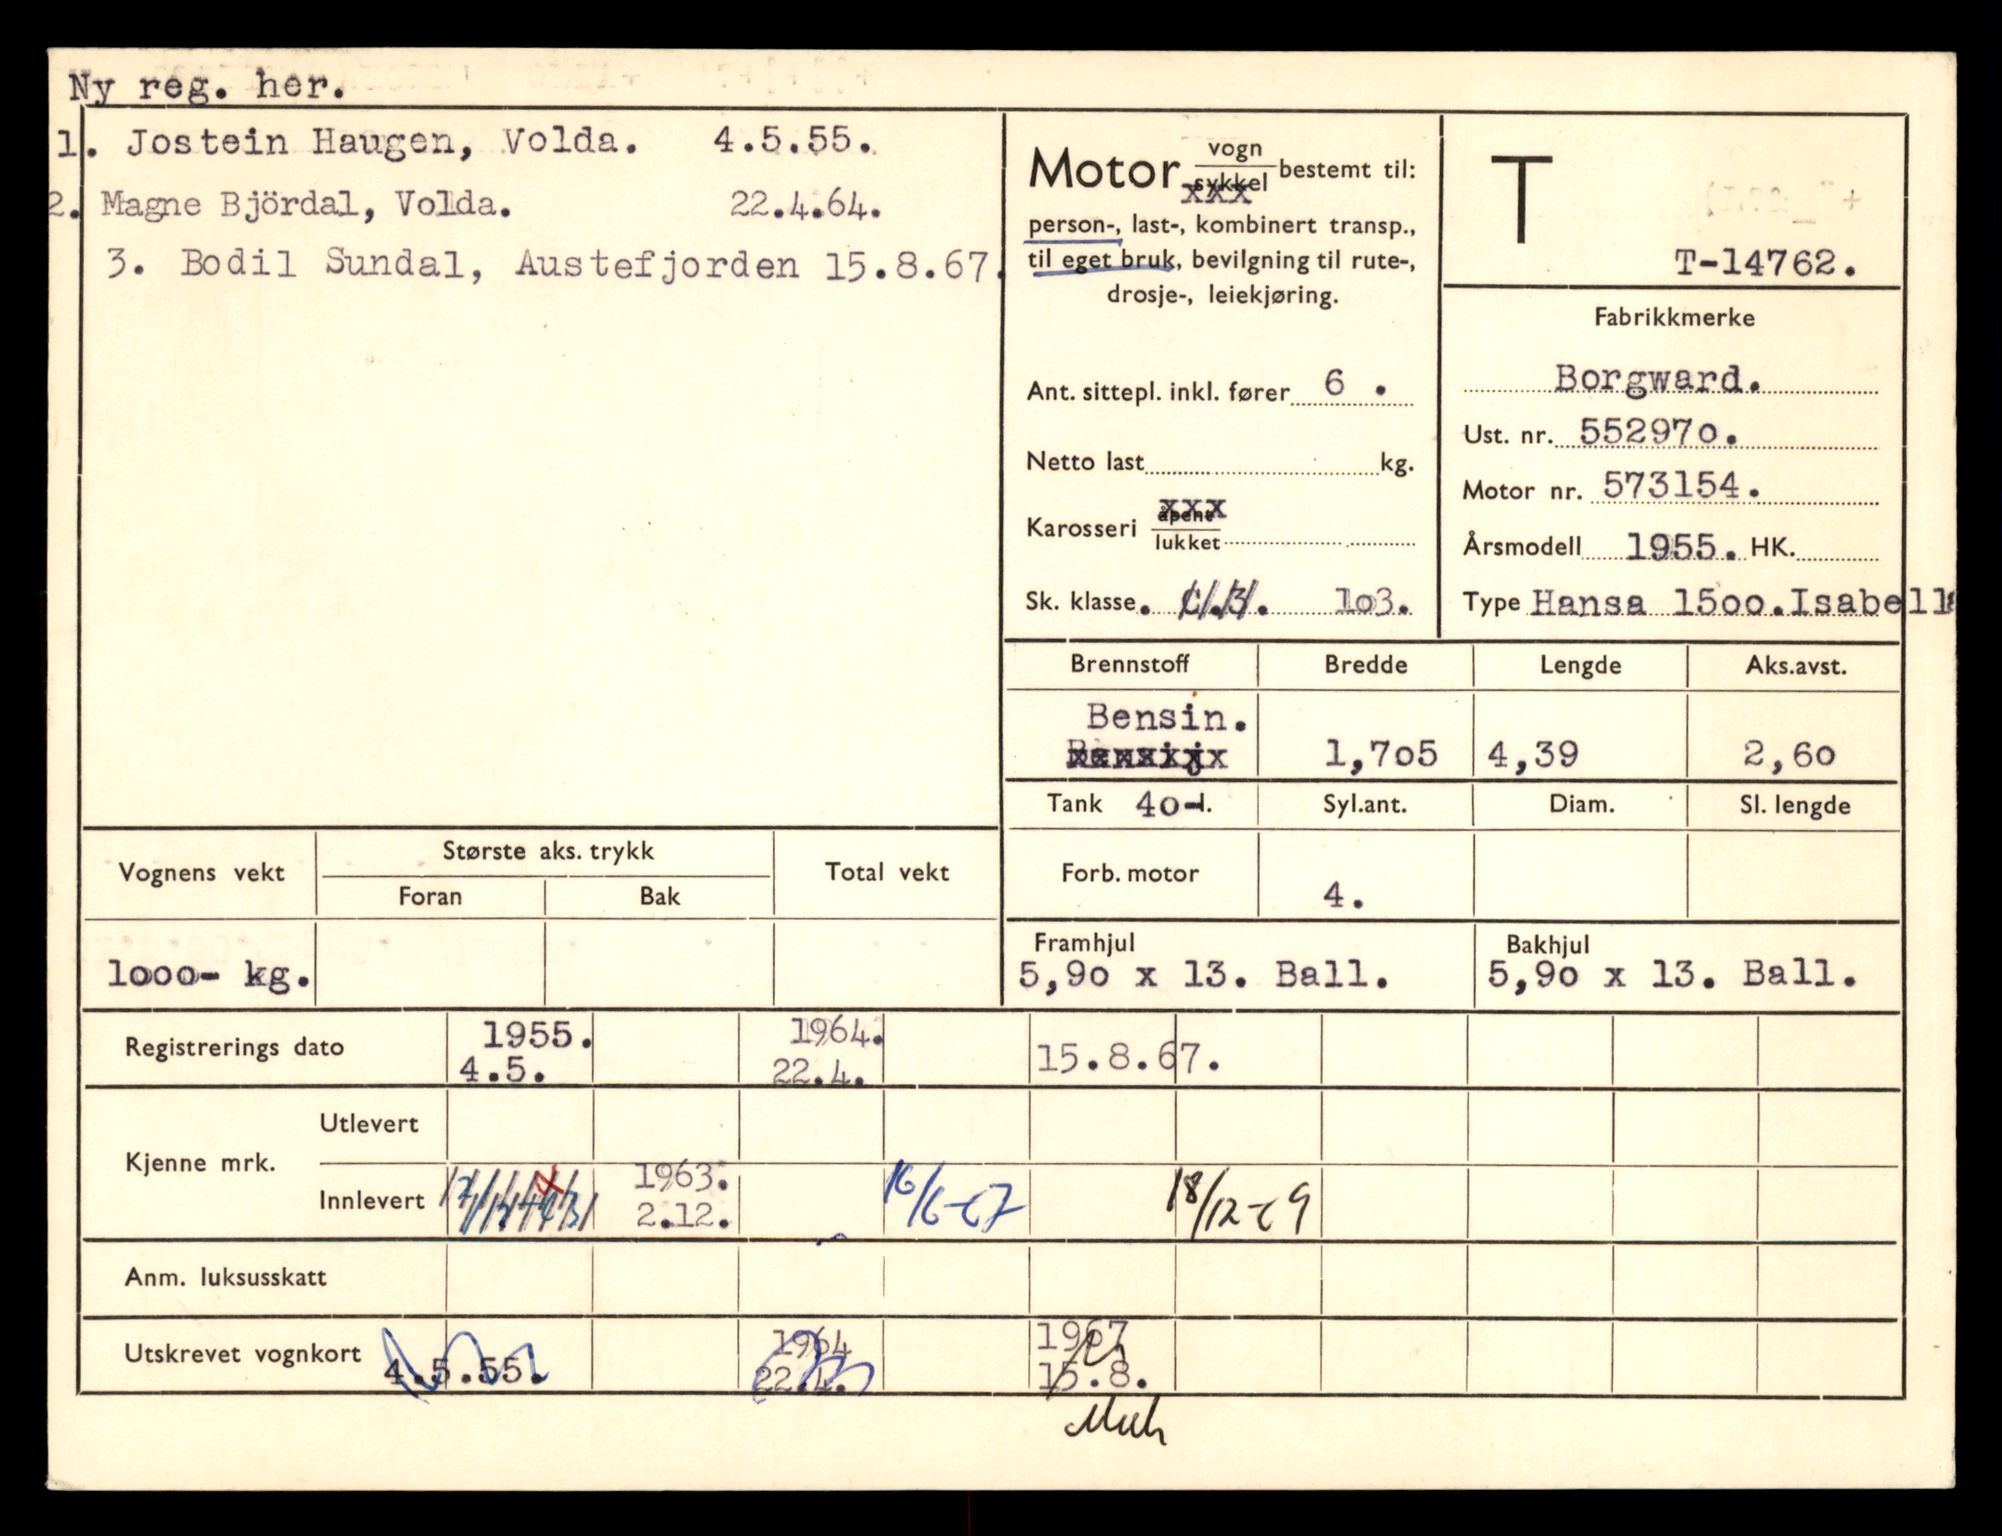 Ny reg. her.
1. Jostein Haugen, Volda. 4.5.55.
2. Magne Björdal, Volda. 22.4.64.
3. Bodil Sundal, Austefjorden 15.8.67.
Motor vogn sykkel bestemt til:
person-, last-, kombinert transp.,
til eget bruk, bevilgning til rute-,
drosje-, leiekjøring.
Ant. sittepl. inkl. fører 6 .
Netto last kg.
Karosseri åpent lukket
Sk. klasse. 103.
T
T-14762.
Fabrikkmerke
Borgward.
Ust. nr. 552970.
Motor nr. 573154.
Årsmodell 1955. HK.
Type Hansa 1500.Isabell
Brennstoff Bredde Lengde Aks.avst.
Bensin.
1,705 4,39 2,60
Tank 40-l. Syl.ant. Diam. Sl. lengde
Forb. motor 4.
Vognens vekt Største aks. trykk Total vekt
Foran Bak
1000- kg.
Framhjul Bakhjul
5,90 x 13. Ball. 5,90 x 13. Ball.
Registrerings dato 1955. 4.5. 1964. 22.4. 15.8.67.
Kjenne mrk.
Utlevert
Innlevert 1963. 2.12. 16/6-67 18/12-69
Anm. luksusskatt
Utskrevet vognkort 4.5.55. 1964 22.4. 1967 15.8.